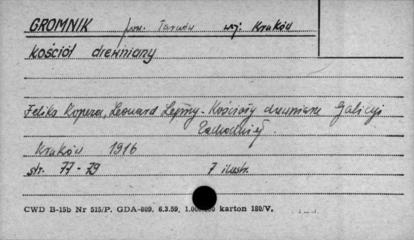 GROMNIK pow. Tarnów woj. Kraków
kościół drewniany
Feliks Kopera, Leonard Lepszy - Kościoły drewniane Galicyi
Zachodniej.
Kraków 1916
str. 77-79 7 ilustr.
CWD B-15b Nr 515/P. GDA-809, 6.3.59, karton 180/V.